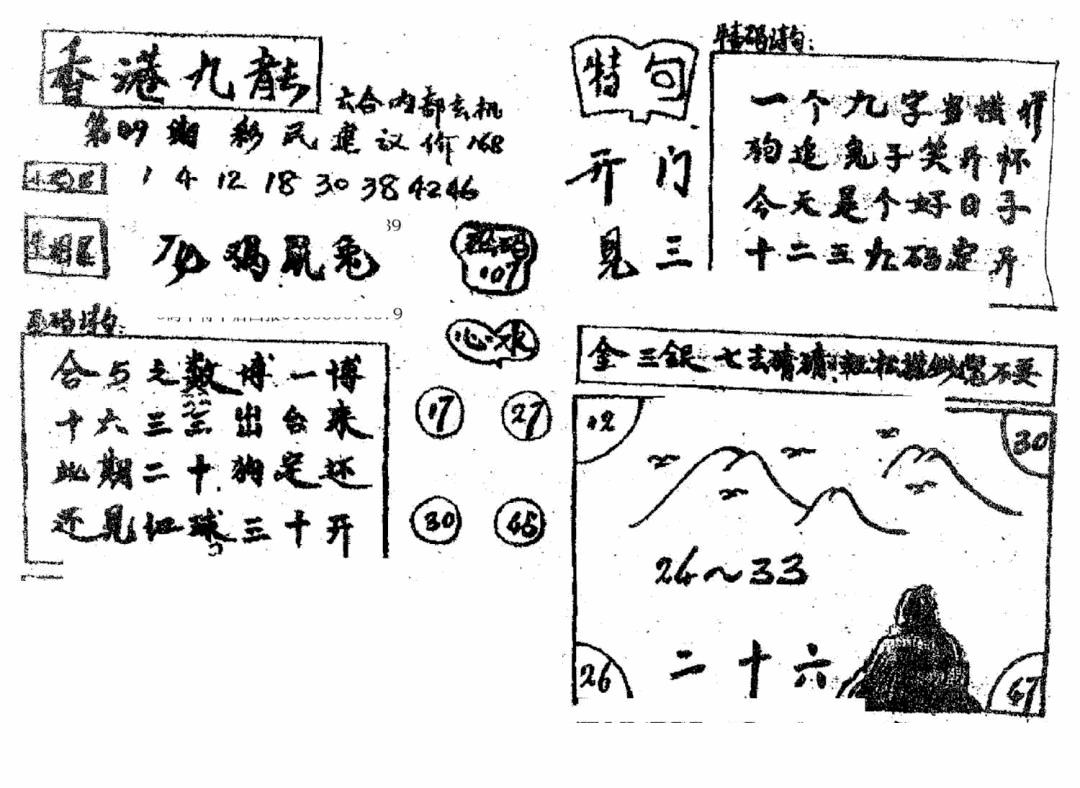 香港九龍
六合内部玄机
第09期 彩民建议价168
1 4 12 18 30 38 42 46
39
生肖区
鸡鼠兔
107
合5之数博一博
十六三至出台来
此期二十狗定还
还见红球三十开
心水
17 27
30 45
特句
开门
见三
特码诗句:
一个九字当横
狗追兔子笑开怀
今天是个好日子
十二五九码定开
金三銀七去睛睛 不要
12
30
24~33
二十六
26
47